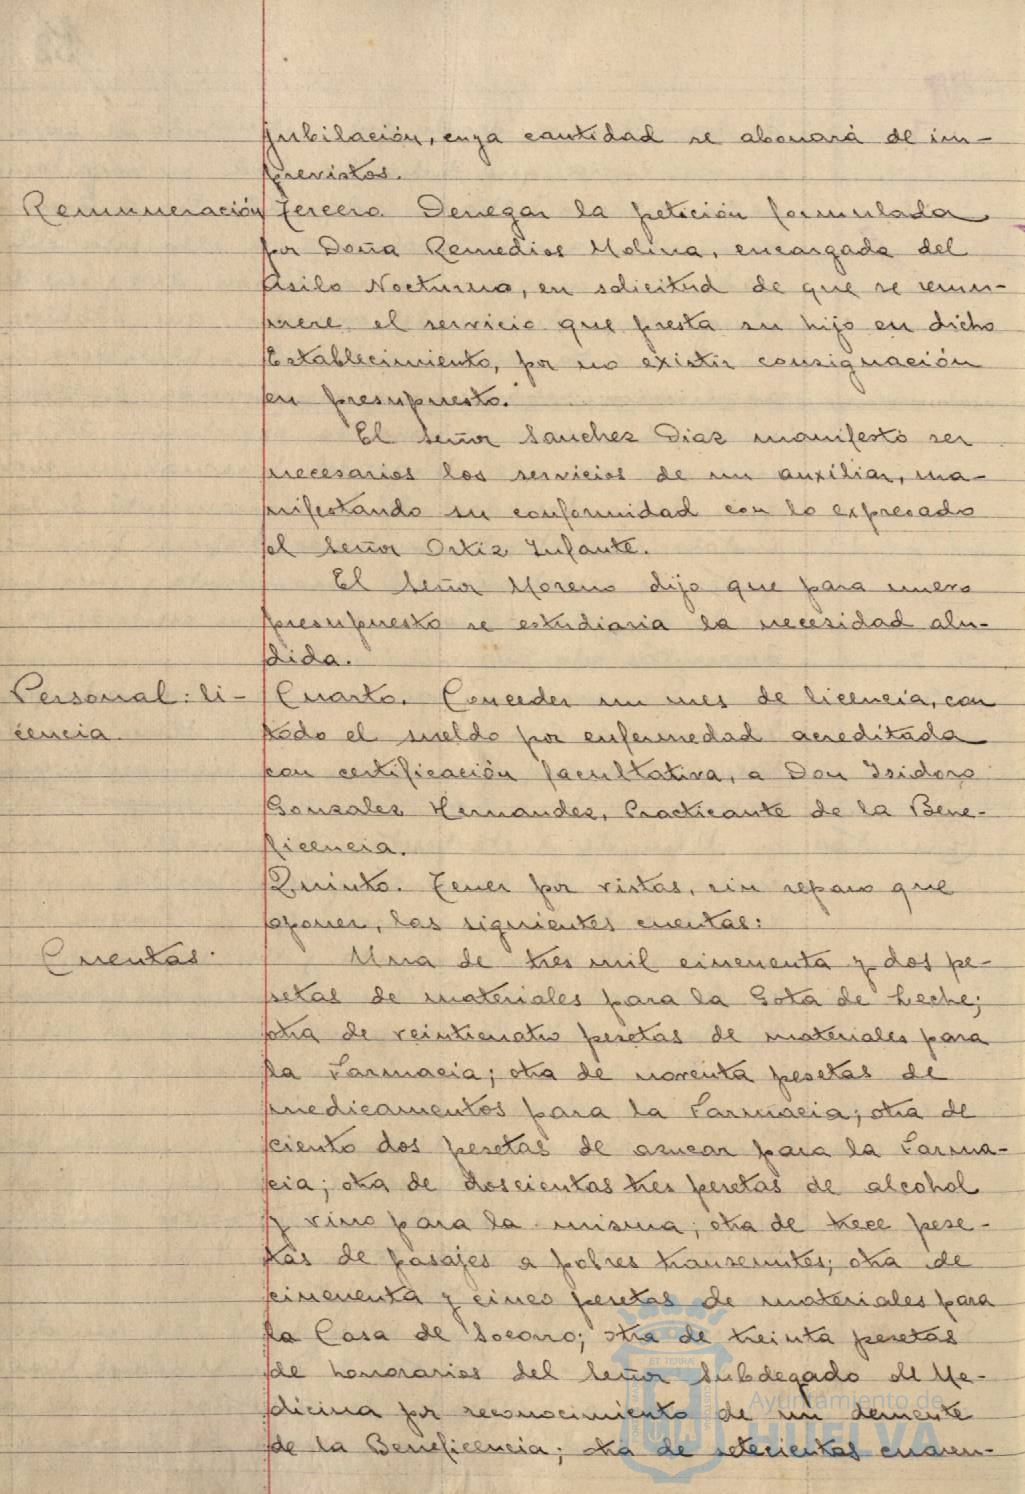 jubilación, cuya cantidad se abonará de im-
previstos.
Remuneración
Tercero. Denegar la petición formulada
por Doña Remedios Molina, encargada del
Asilo Nocturno, en solicitud de que se remu-
nere el servicio que presta su hijo en dicho
Establecimiento, por no existir consignación
en presupuesto.
El Señor Sanchez Diaz manifestó ser
necesarios los servicios de un auxiliar, ma-
nifestando su conformidad con lo expresado
el Señor Ortiz Infante.
El Señor Moreno dijo que para nuevo
presupuesto se estudiaria la necesidad alu-
dida.
Personal: li-
cencia.
Cuarto. Conceder un mes de licencia, con
todo el sueldo por enfermedad acreditada
con certificación facultativa, a Don Isidoro
Gonzalez Hernandez, Practicante de la Bene-
ficencia.
Quinto. Tener por vistas, sin reparo que
oponer, las siguientes cuentas:
Cuentas.
Una de tres mil cincuenta y dos pe-
setas de materiales para la Gota de Leche;
otra de veinticuatro pesetas de materiales para
la Farmacia; otra de noventa pesetas de
medicamentos para la Farmacia; otra de
ciento dos pesetas de azucar para la Farma-
cia; otra de doscientas tres pesetas de alcohol
y vino para la misma; otra de trece pese-
tas de pasajes a pobres transeuntes; otra de
cincuenta y cinco pesetas de materiales para
la Casa de Socorro; otra de treinta pesetas
de honorarios del Señor Subdegado de Me-
dicina por reconocimiento de un demente
de la Beneficencia; otra de setecientas cuaren-
ET TERRA
Ayuntamiento de
HUELVA